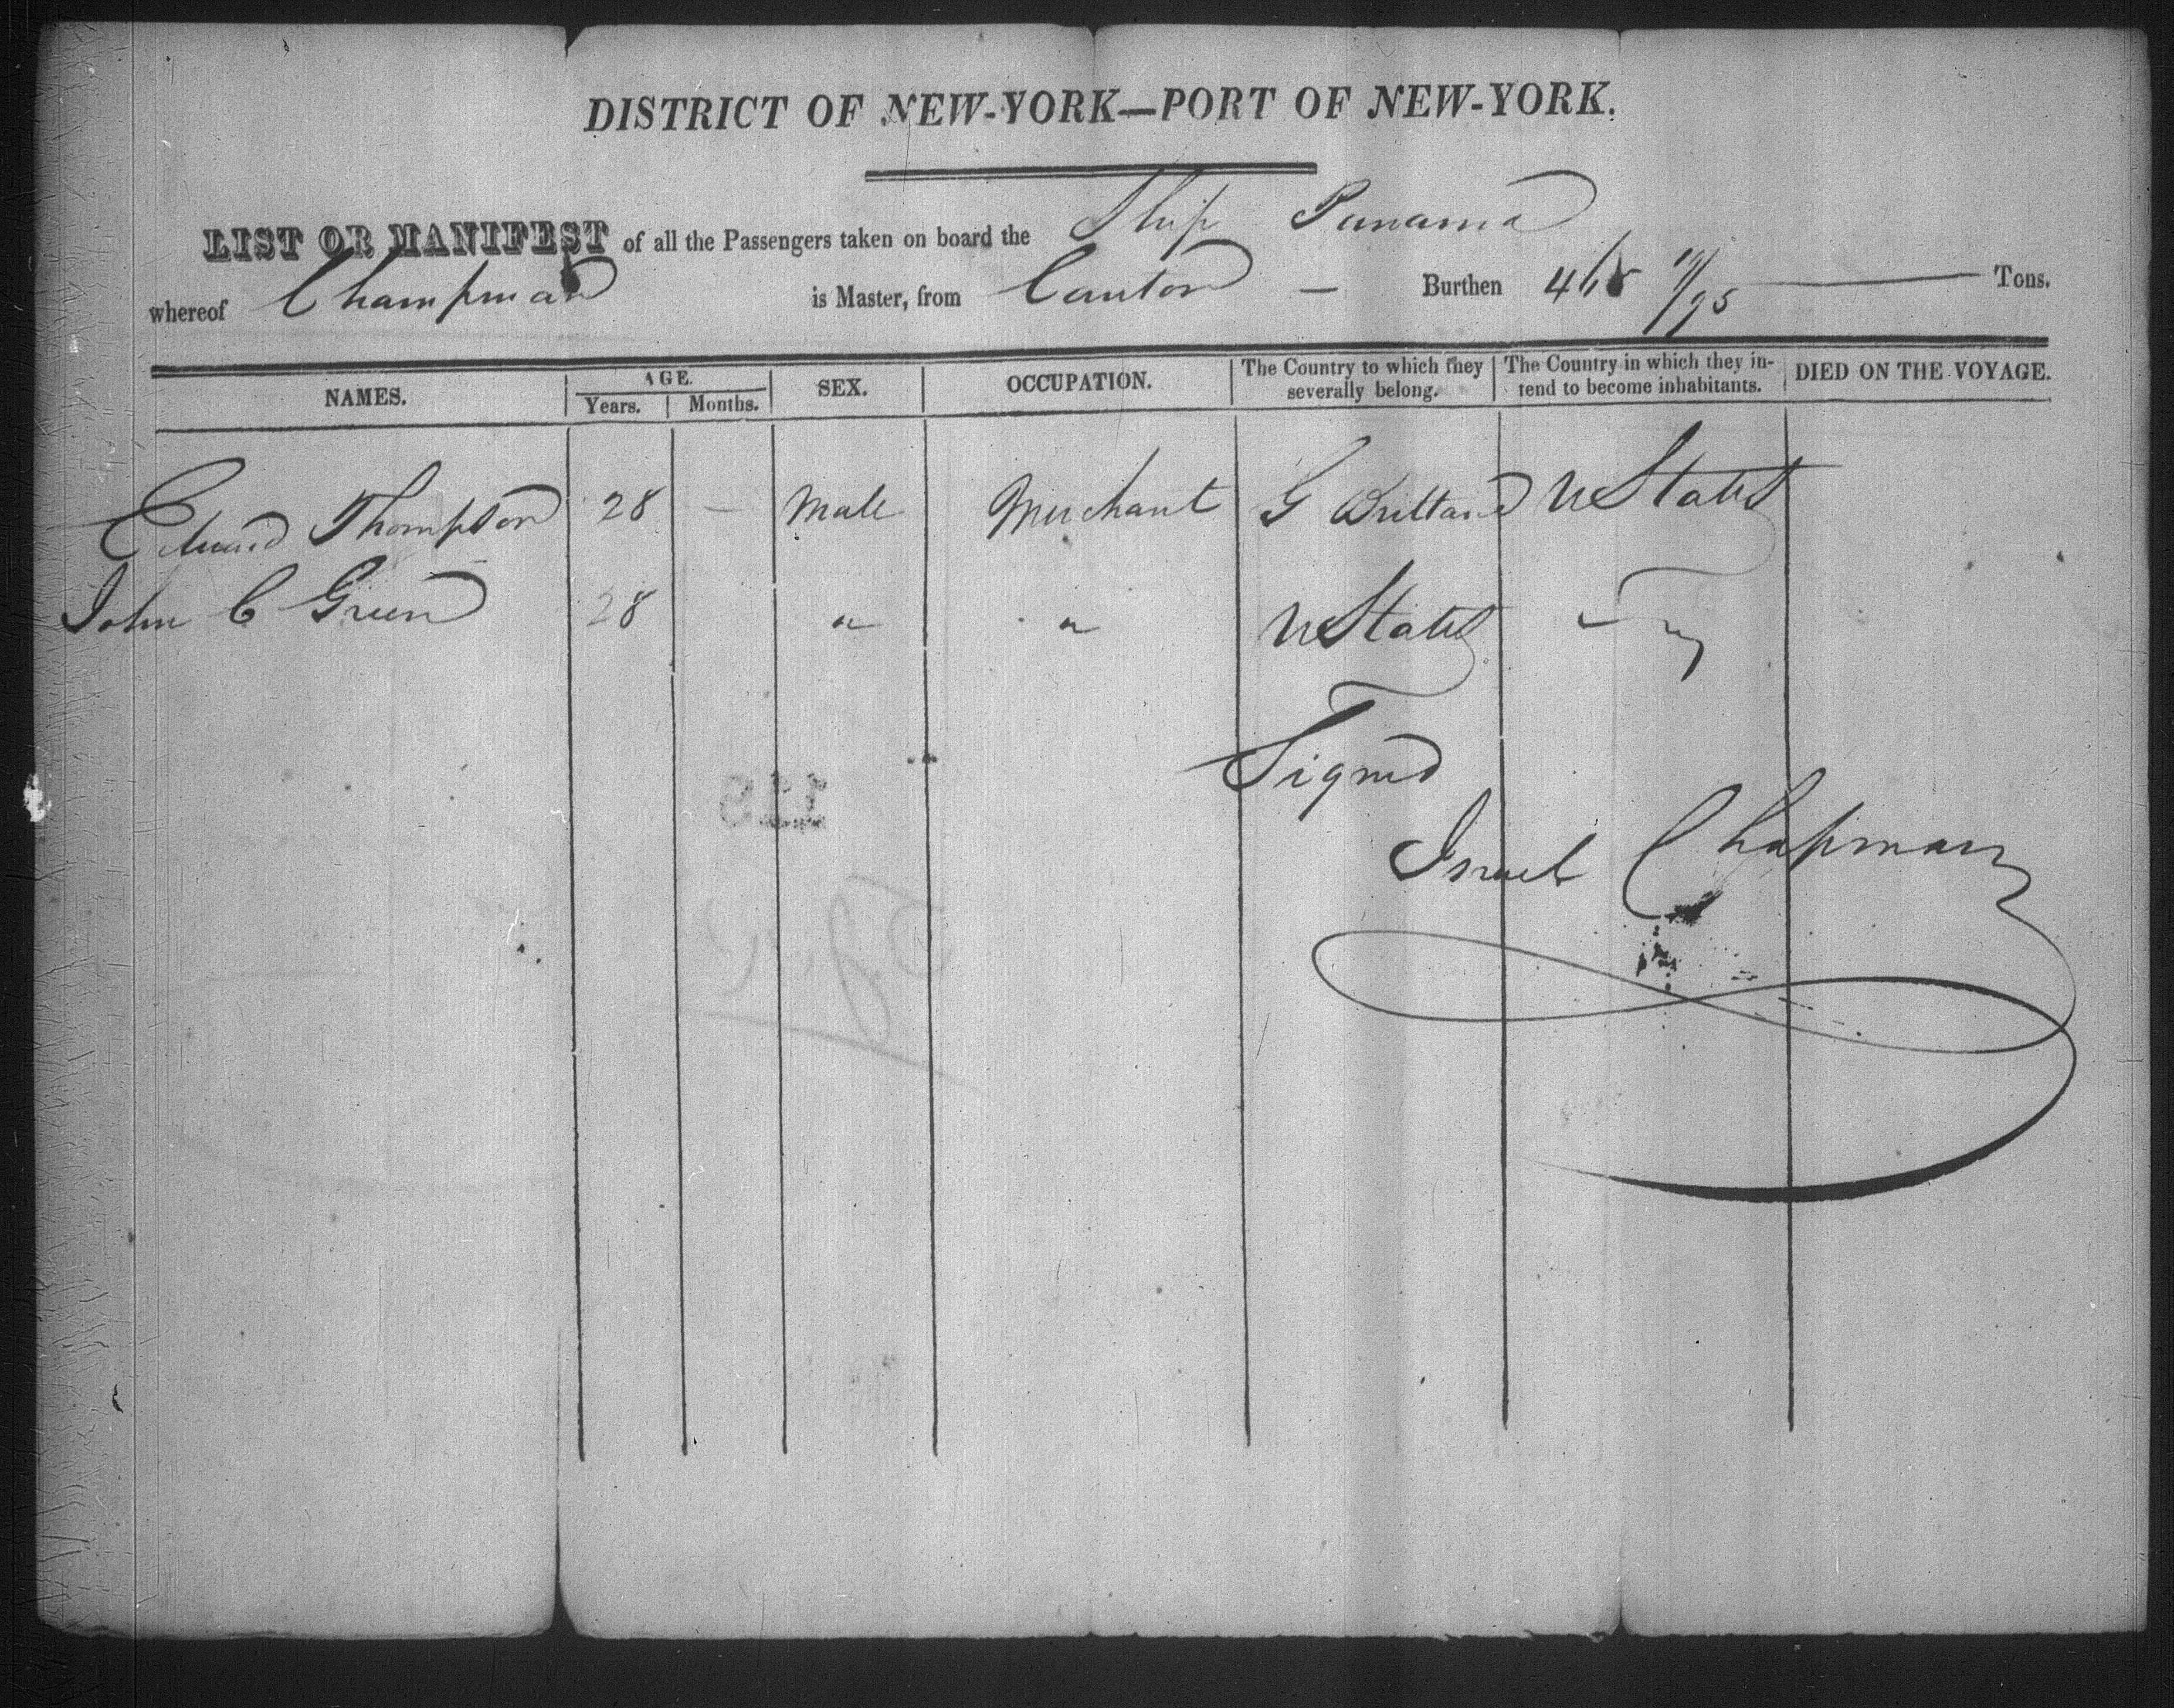 DISTRICT OF NEW-YORK—PORT OF NEW-YORK.
LIST OR MANIFEST of all the Passengers taken on board the Ship Panama
whereof Champman is Master, from Canton — Burthen 468 /95 Tons.
NAMES. AGE. Years. Months. SEX. OCCUPATION. The Country to which they severally belong. The Country in which they intend to become inhabitants. DIED ON THE VOYAGE.
Edward Thompson 28 — Male Merchant G Brittand U States
John C Green 28 " " U States "
Signed
Israel Chapman